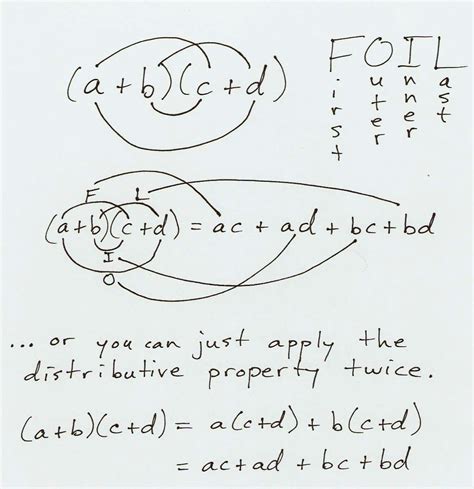 (a+b)(c+d)
FOIL
First
Outer
Inner
Last
F L
(a+b)(c+d) = ac + ad + bc + bd
I
O
... or you can just apply the
distributive property twice.
(a+b)(c+d) = a(c+d) + b(c+d)
= ac+ad + bc + bd